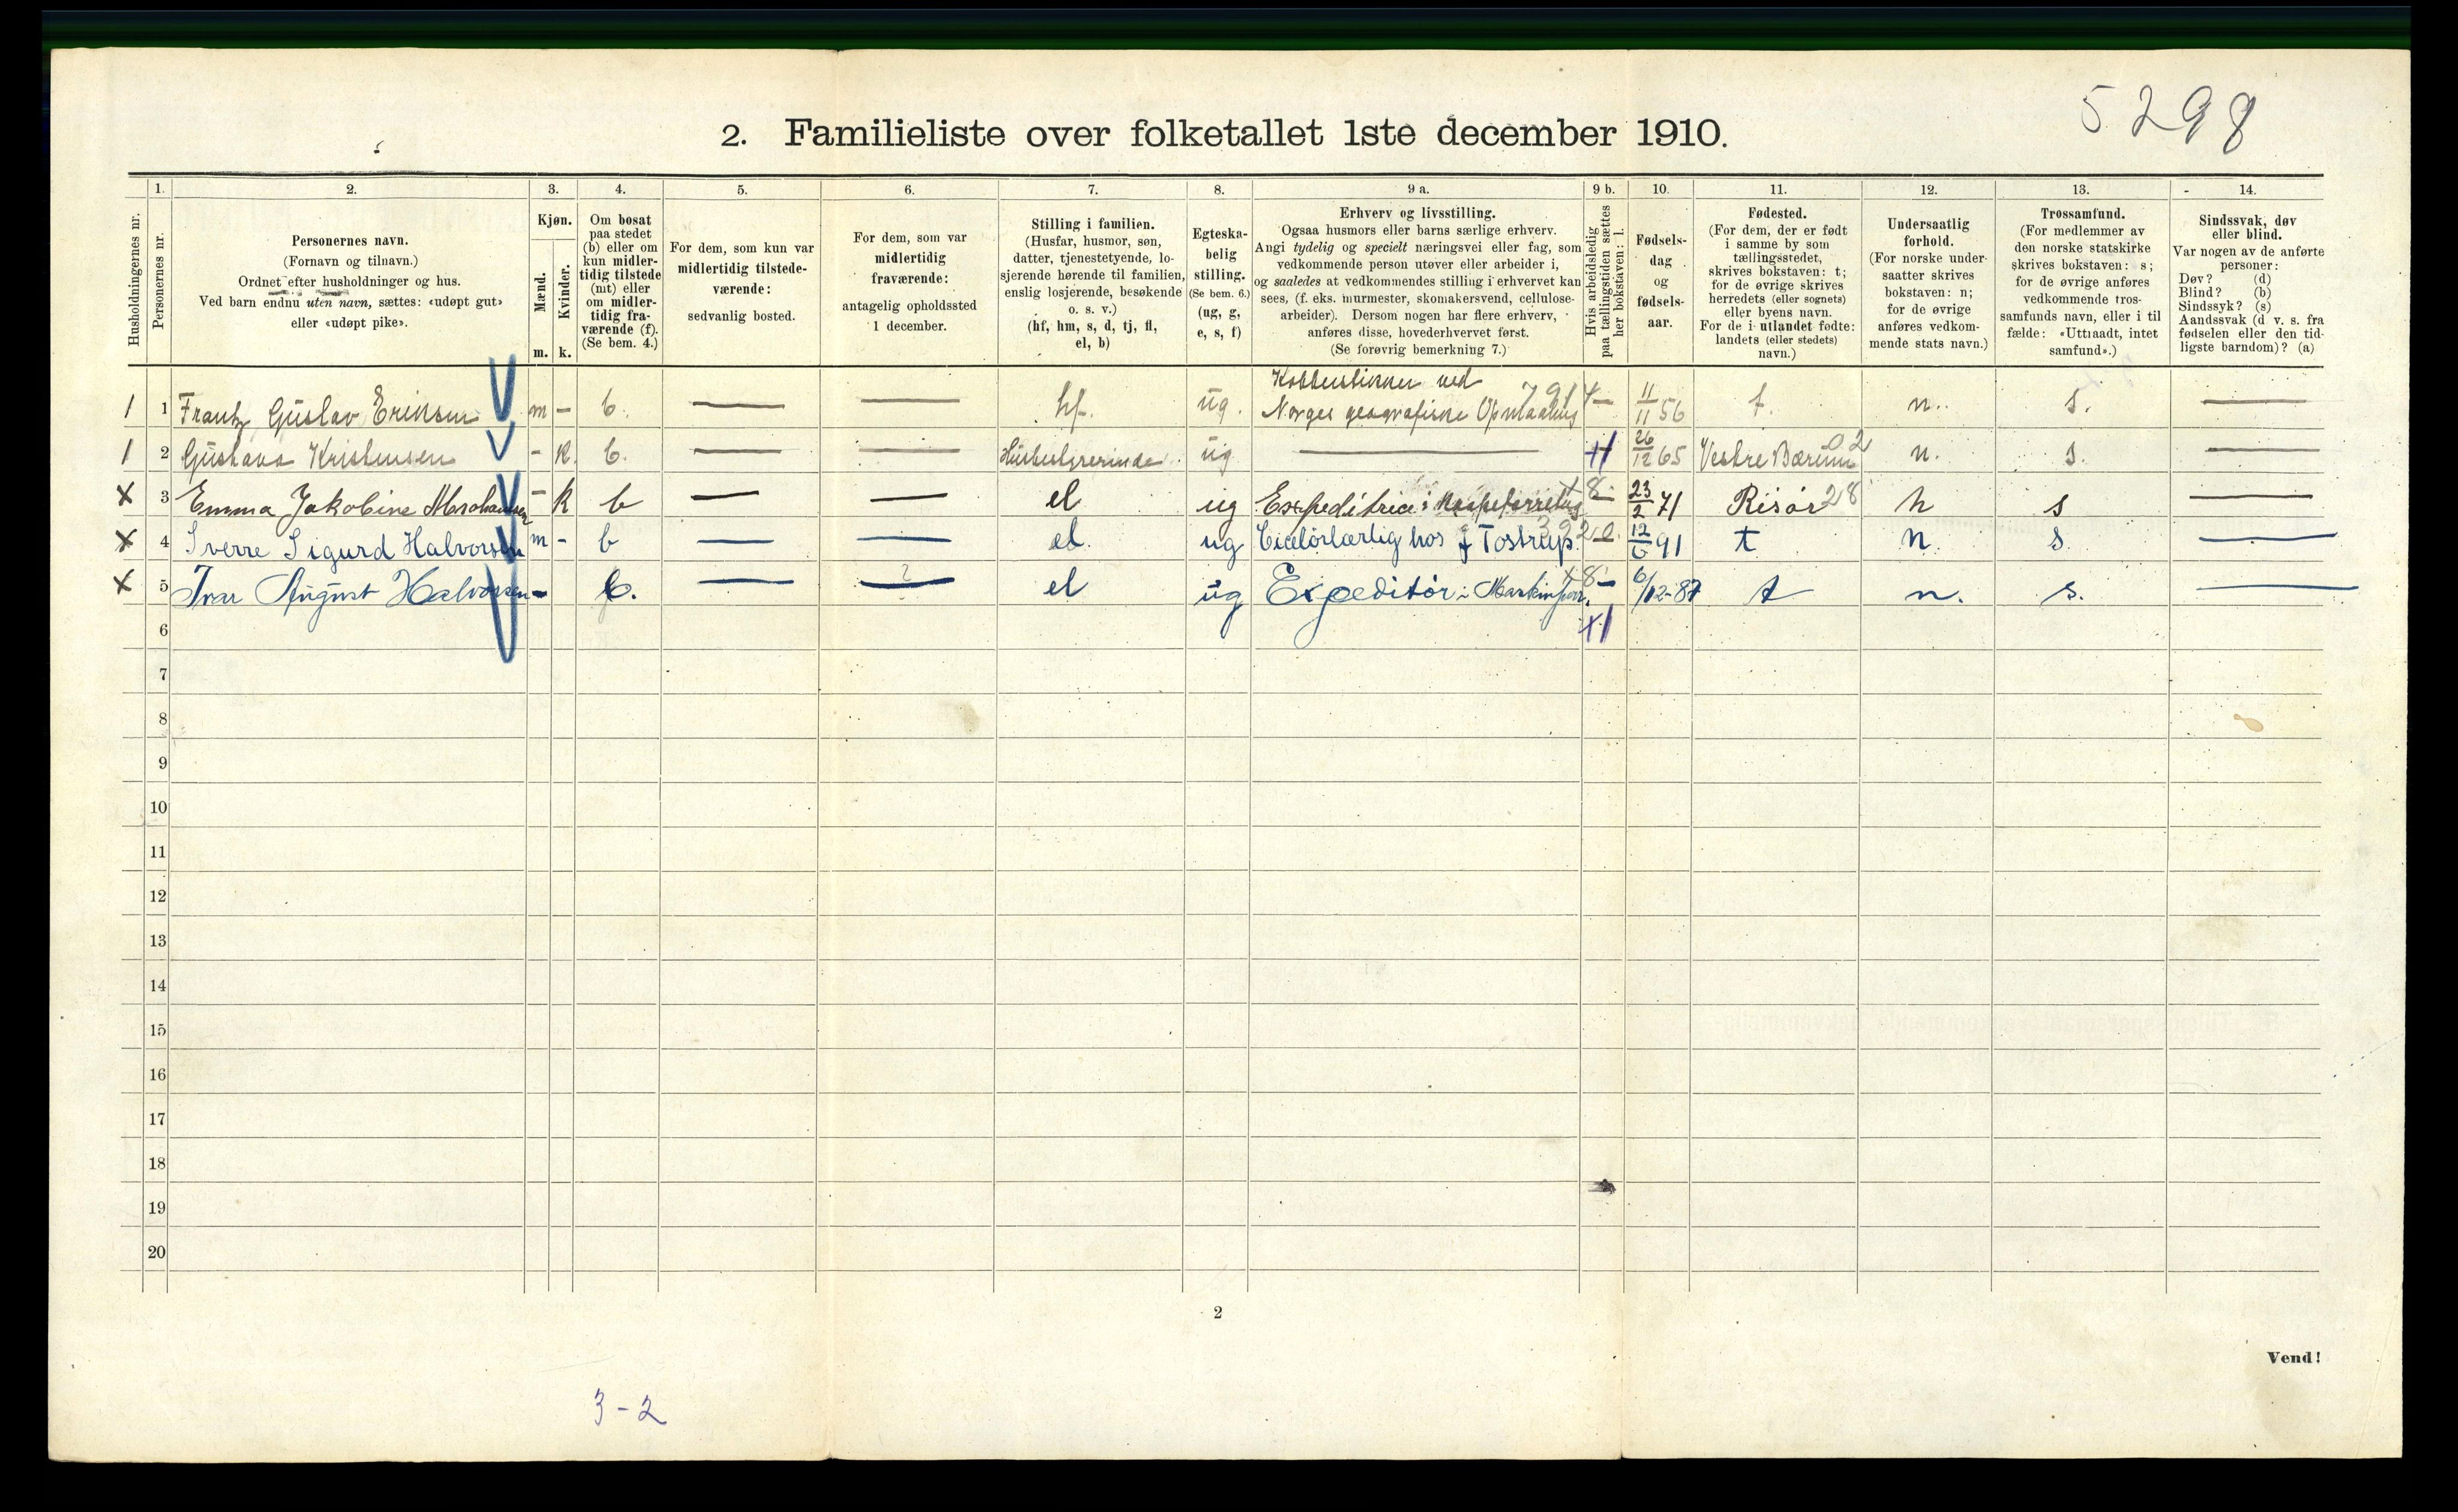 5298
2. Familieliste over folketallet 1ste december 1910.
1. 2. 3. 4. 5. 6. 7. 8. 9 a. 9 b. 10. 11. 12. 13. 14.
Husholdningernes nr.
Personernes nr.
Personernes navn.
(Fornavn og tilnavn.)
Ordnet efter husholdninger og hus.
Ved barn endnu uten navn, sættes: «udøpt gut»
eller «udøpt pike».
Kjøn.
Mænd.
Kvinder.
m. k.
Om bosat
paa stedet
(b) eller om
kun midler-
tidig tilstede
(mt) eller
om midler-
tidig fra-
værende (f).
(Se bem. 4.)
For dem, som kun var
midlertidig tilstede-
værende:
sedvanlig bosted.
For dem, som var
midlertidig
fraværende:
antagelig opholdssted
1 december.
Stilling i familien.
(Husfar, husmor, søn,
datter, tjenestetyende, lo-
sjerende hørende til familien,
enslig losjerende, besøkende
o. s. v.)
(hf, hm, s, d, tj, fl,
el, b)
Egteska-
belig
stilling.
(Se bem. 6.)
(ug, g,
e, s, f)
Erhverv og livsstilling.
Ogsaa husmors eller barns særlige erhverv.
Angi tydelig og specielt næringsvei eller fag, som
vedkommende person utøver eller arbeider i,
og saaledes at vedkommendes stilling i erhvervet kan
sees, (f. eks. murmester, skomakersvend, cellulose-
arbeider). Dersom nogen har flere erhverv,
anføres disse, hovederhvervet først.
(Se forøvrig bemerkning 7.)
Hvis arbeidsledig
paa tællingstiden sættes
her bokstaven: l.
Fødsels-
dag
og
fødsels-
aar.
Fødested.
(For dem, der er født
i samme by som
tællingsstedet,
skrives bokstaven: t;
for de øvrige skrives
herredets (eller sognets)
eller byens navn.
For de i utlandet fødte:
landets (eller stedets)
navn.)
Undersaatlig
forhold.
(For norske under-
saatter skrives
bokstaven: n;
for de øvrige
anføres vedkom-
mende stats navn.)
Trossamfund.
(For medlemmer av
den norske statskirke
skrives bokstaven: s;
for de øvrige anføres
vedkommende tros-
samfunds navn, eller i til
fælde: «Uttraadt, intet
samfund».)
Sindssvak, døv
eller blind.
Var nogen av de anførte
personer:
Døv? (d)
Blind? (b)
Sindssyk? (s)
Aandssvak (d v. s. fra
fødselen eller den tid-
ligste barndom)? (a)
1 1 Frantz Gustav Eriksen m – b. — — hf. ug. Kobberstikker ved Norges geografiske Opmaaling 791 4 – 11/11 56 t. n. s. —
1 2 Gustava Kristensen – k. b. — — Husbestyrerinde ug — 26/12 65 Vestre Bærum 02 n. s. —
x 3 Emma Jakobine – k b — — el ug Expeditrice i x8 – 23/2 71 Risør 28 n s —
x 4 Sverre Sigurd Halvorsen m – b — — el. ug Ciselørlærlig hos J Tostrup. 91 t n. s. —
x 5 Ivar August Halvorsen – b. — — el ug Expeditør i Maskinforr. x8 – 6/12-87 t n. s. —
6
7
8
9
10
11
12
13
14
15
16
17
18
19
20
2
Vend!
3-2